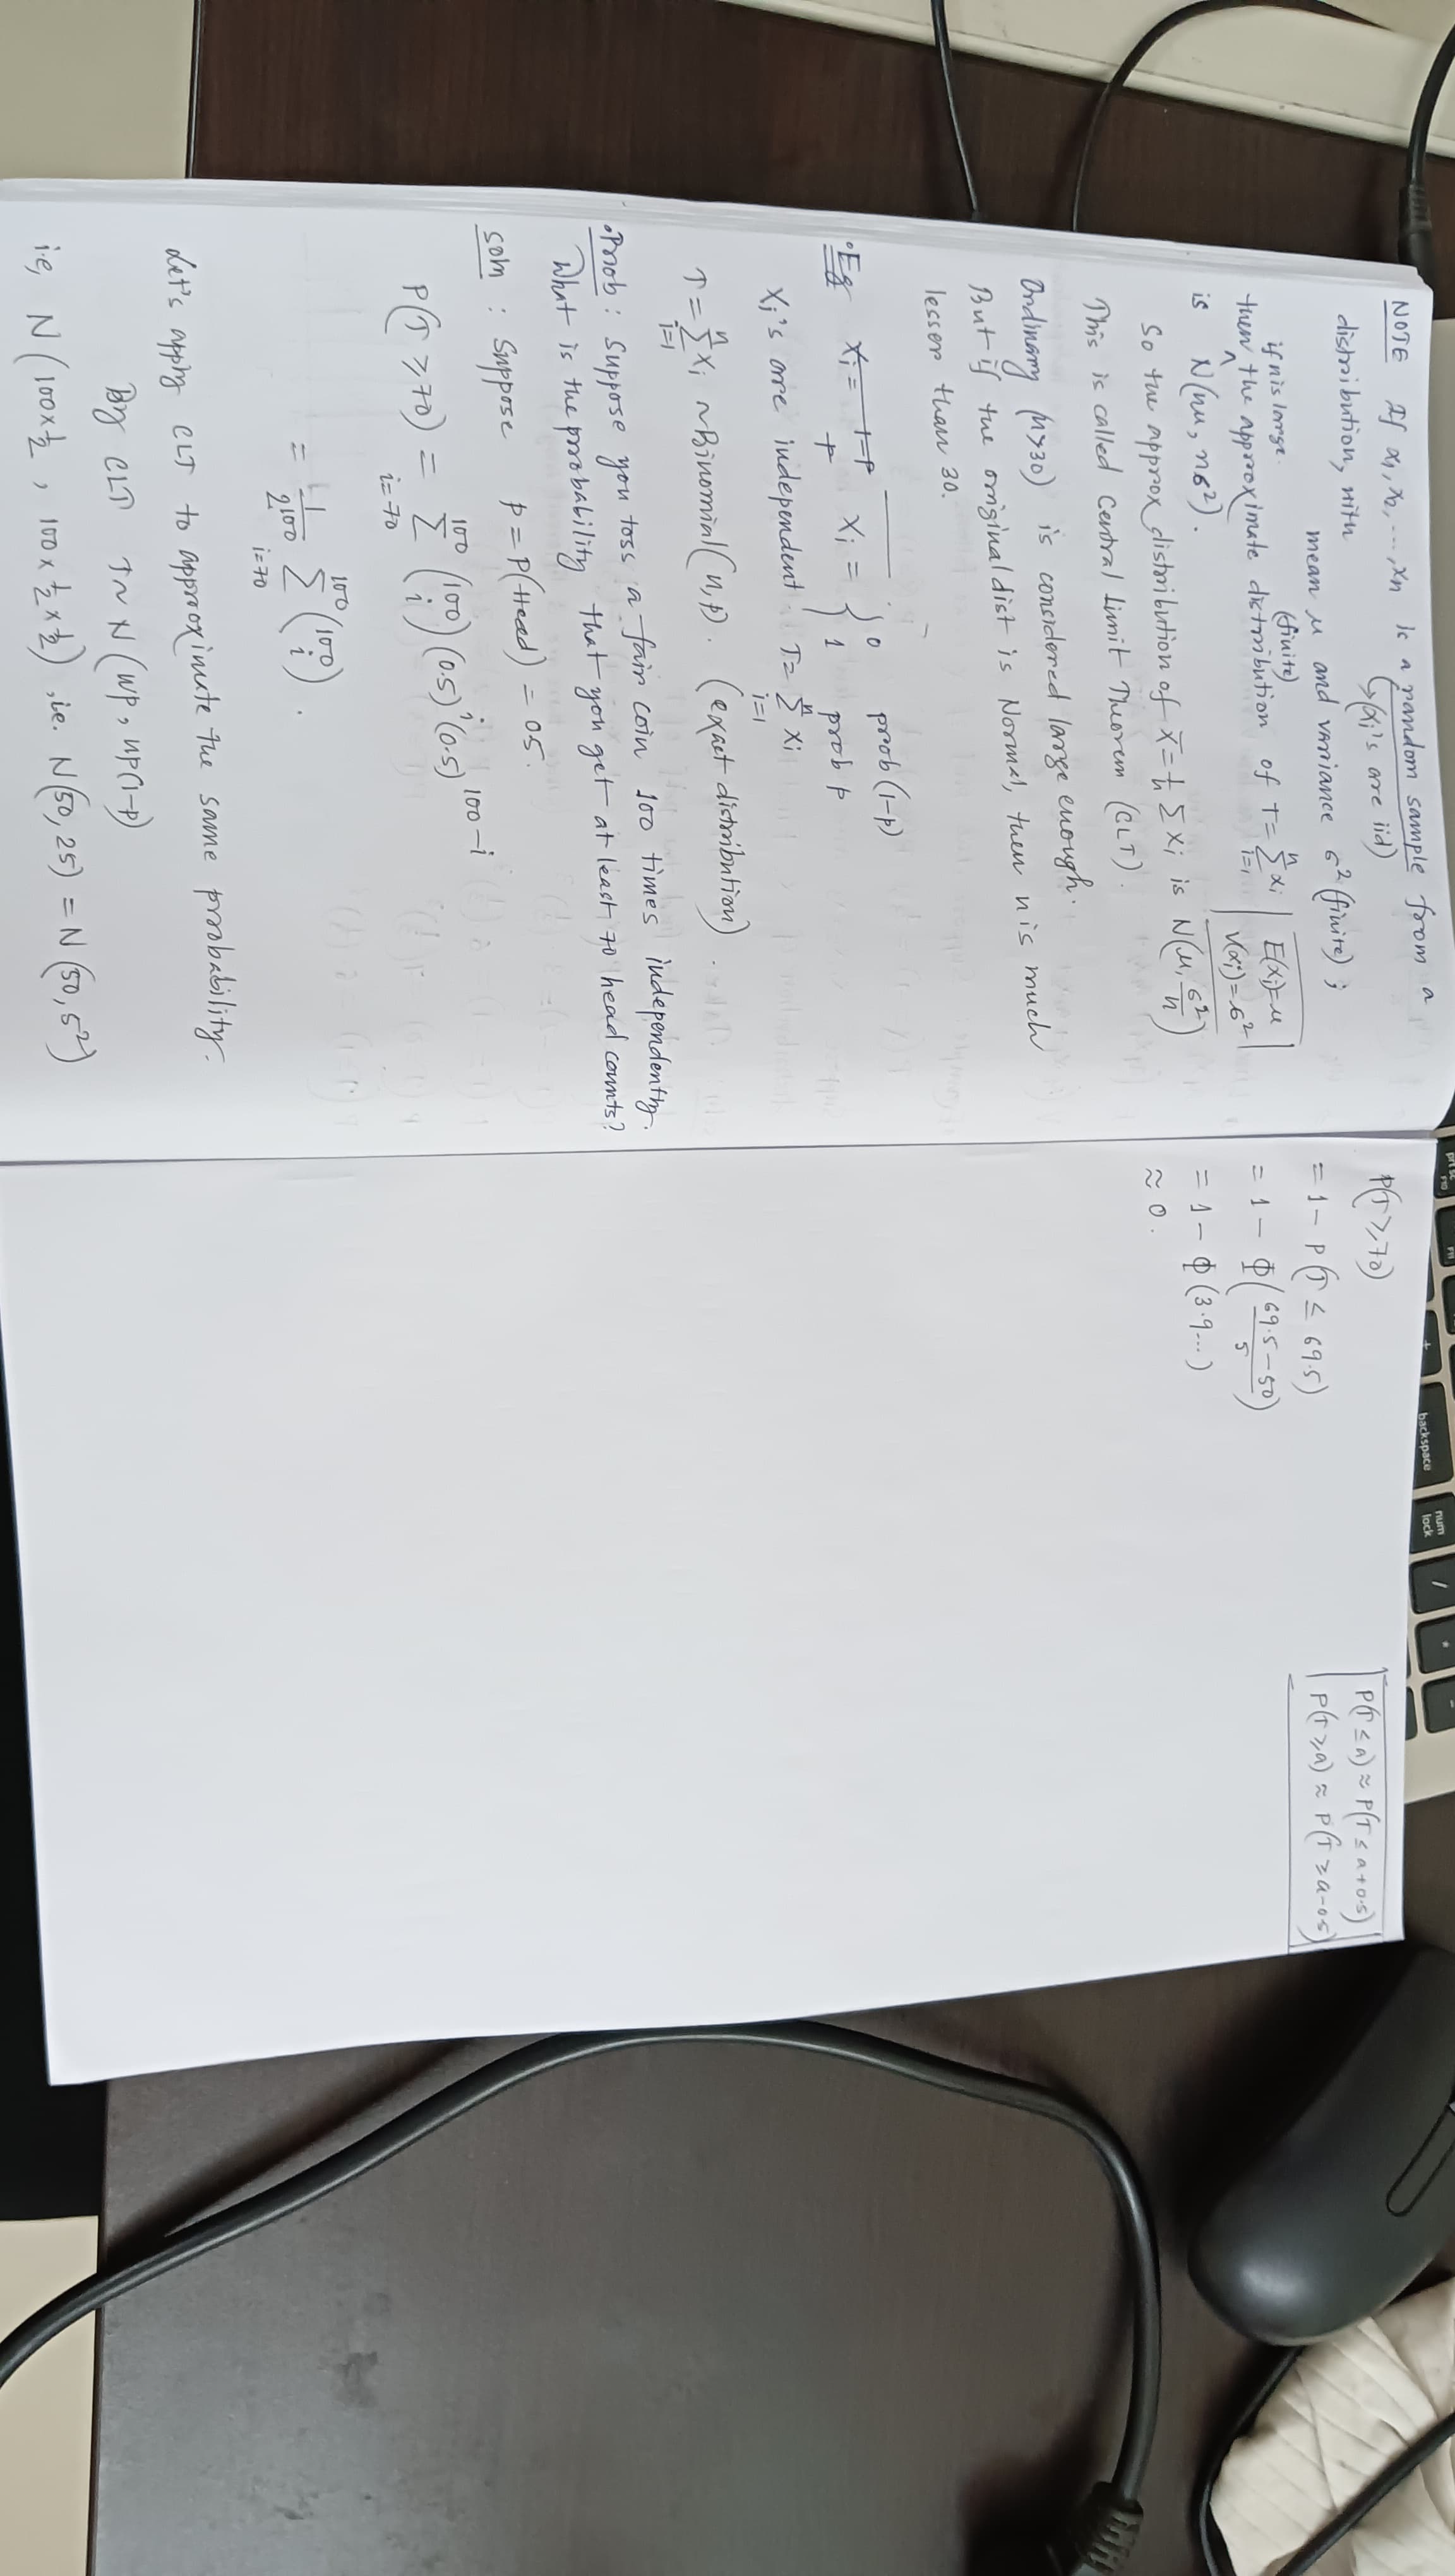 NOTE If x₁, x₂, ..., xn is a random sample from a
(xi's are iid)
distribution, with
mean μ and variance σ² (finite);
(finite)
if n is large.
then the approximate distribution of T = Σ_{i=1}^{n} xi
E(xi)=μ
V(xi)=σ²
is N(nμ, nσ²).
So the approx distribution of x̄ = 1/n Σ xi is N(μ, σ²/n)
This is called Central Limit Theorem (CLT).
Ordinary (n>30) is considered large enough.
But if the original dist is Normal, then n is much
lesser than 30.
•Eg Xi = { 0 prob (1-p)
1 prob p
Xi's are independent. T = Σ_{i=1}^{n} xi
T = Σ_{i=1}^{n} Xi ~ Binomial(n, p). (exact distribution).
•Prob: Suppose you toss a fair coin 100 times independently.
What is the probability that you get at least 70 head counts?
Soln: Suppose p = P(Head) = 0.5.
P(T ≥ 70) = Σ_{i=70}^{100} (100 i) (0.5)^i (0.5)^{100-i}
= 1/2^{100} Σ_{i=70}^{100} (100 i).
Let's apply CLT to approximate the same probability.
By CLT T ~ N(np, np(1-p))
i.e, N(100×½, 100×½×½), i.e. N(50, 25) = N(50, 5²)
P(T ≥ 70)
= 1 - P(T ≤ 69.5)
= 1 - Φ((69.5 - 50)/5)
= 1 - Φ(3.9...)
≈ 0.
P(T ≤ a) ≈ P(T ≤ a+0.5)
P(T ≥ a) ≈ P(T ≥ a-0.5)
backspace
num
lock
/
*
-
+